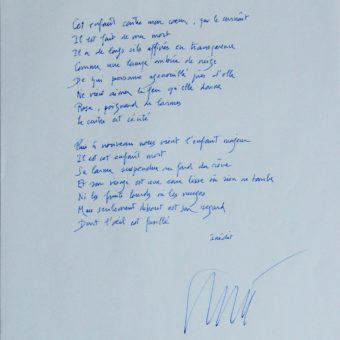 Cet enfant contre mon coeur, que le
Il est fait de ma mort
Il a de longs cils effilés en transparence
Comme une louange ambrée de neige
De qui personne agenouillé près d'elle
Ne veut aimer le feu qu'elle donne
Rose, poignard de larmes
le centre est cécité
Puis à nouveau nous vient l'enfant majeur
Il est cet enfant mort
Sa larme suspendue au fond du rêve
Et son visage est une eau lisse où rien ne tombe
Ni les fruits lourds ni les nuages
Mais seulement debout est son regard
Dont l'oeil est fusillé
inédit